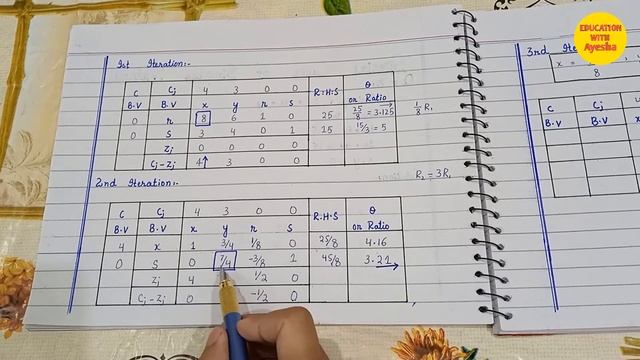 EDUCATION
WITH
Ayesha
1st Iteration:-
C Cj 4 3 0 0 R.H.S θ
B.V B.V x y r s or Ratio
0 r 8 6 1 0 25 25/8 = 3.125 1/8 R₁
0 S 3 4 0 1 15 15/3 = 5
Zj 0 0 0 0
Cj - Zj 4↑ 3 0 0
2nd Iteration:- R₂ = 3R₁
C Cj 4 3 0 0 R.H.S θ
B.V B.V x y r s or Ratio
4 x 1 3/4 1/8 0 25/8 4.16
0 S 0 7/4 -3/8 1 45/8 3.21
Zj 4 1/2 0
Cj - Zj 0 -1/2 0
3rd
x =
8
C Cj
B.V B.V x